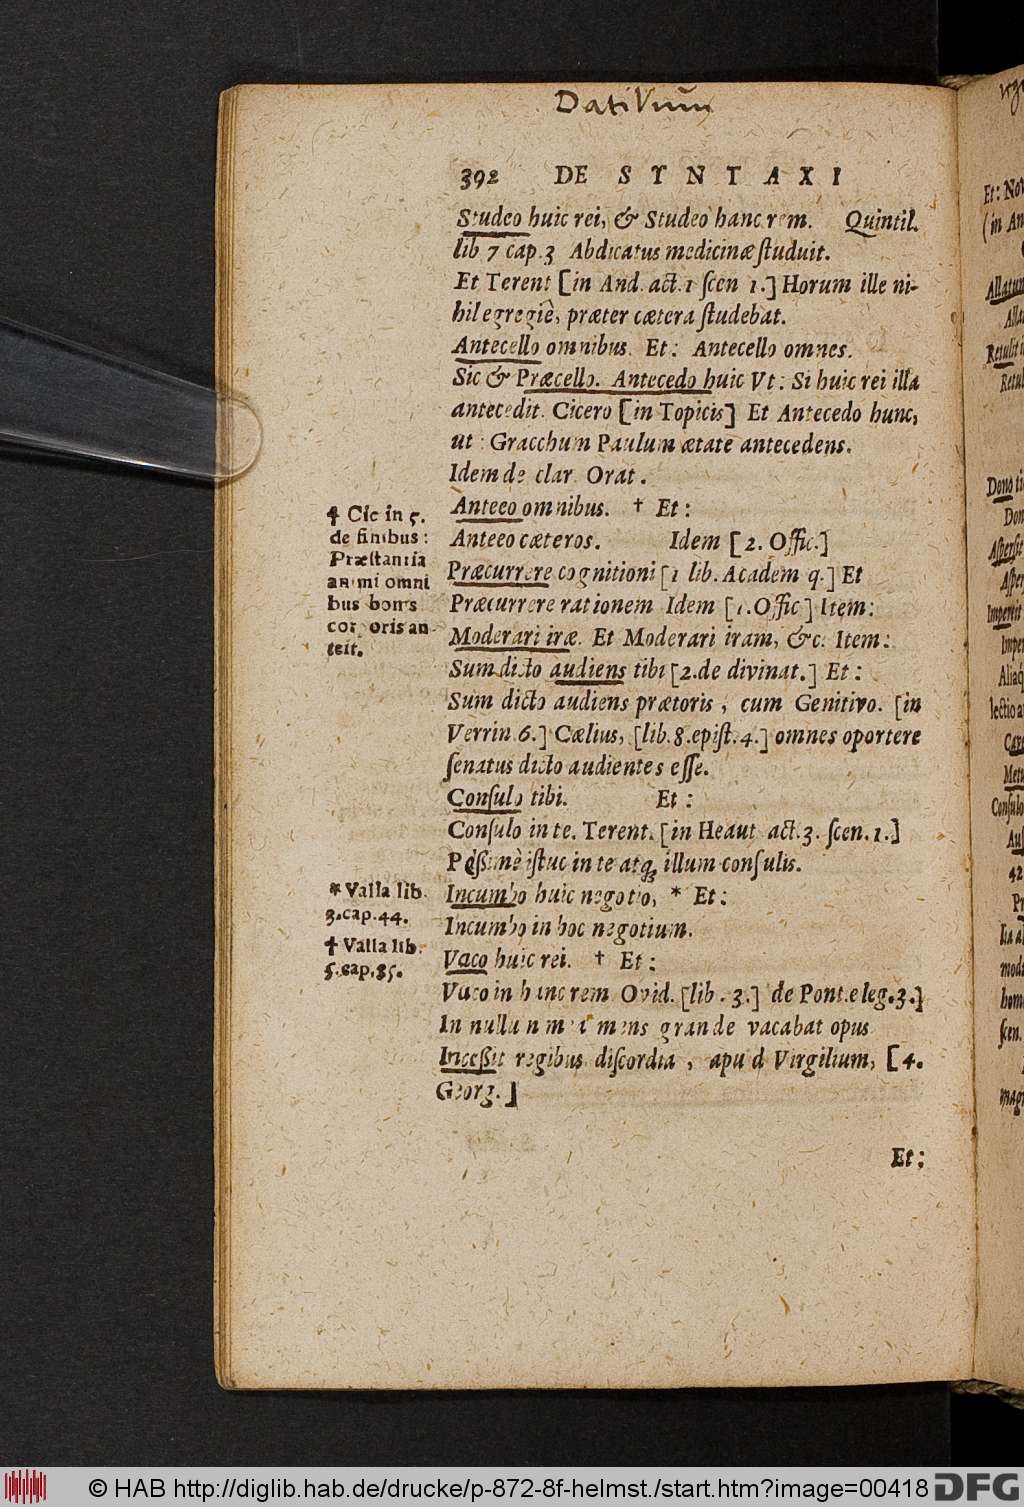 Dativum
392 DE SYNTAXI
Studeo huic rei, & Studeo hanc rem. Quintil.
lib 7 cap.3 Abdicatus medicinæ ſtuduit.
Et Terent [in And. act.1 ſcen 1.] Horum ille ni-
hil egregiè, præter cætera ſtudebat.
Antecello omnibus. Et: Antecello omnes.
Sic & Præcello. Antecedo huic Vt: Si huic rei illa
antecedit. Cicero [in Topicis] Et Antecedo hunc,
ut: Gracchum Paulum ætate antecedens.
Idem de clar Orat.
Anteeo omnibus. † Et:
Anteeo cæteros. Idem [2. Offic.]
Præcurrere cognitioni [1 lib. Academ q.] Et
Præcurrere rationem Idem [1.Offic] Item:
Moderari iræ. Et Moderari iram, &c. Item:
Sum dicto audiens tibi [2.de divinat.] Et:
Sum dicto audiens prætoris, cum Genitivo. [in
Verrin 6.] Cælius, [lib.8.epiſt.4.] omnes oportere
ſenatus dicto audientes eſſe.
Conſulo tibi. Et:
Conſulo in te. Terent. [in Heaut act.3. ſcen.1.]
Peßimè iſtuc in te atq; illum conſulis.
Incumbo huic negotio, * Et:
Incumbo in hoc negotium.
Vaco huic rei. † Et:
Vaco in hanc rem Ovid. [lib. 3.] de Pont.eleg.3.]
In nullum mea mens grande vacabat opus
Inceßit regibus diſcordia, apud Virgilium, [4.
Georg.]
Et:
† Cic in 5.
de finibus:
Præſtantia
animi omni
bus bonis
corporis an-
teit.
* Valla lib.
3.cap.44.
† Valla lib.
5.cap.85.
Et: Nov
(in An
Allatum
Alla
Retulit
Retul
Dono ti
Don
Aſperſit
Aſper
Impertit
Imper
Aliáq
lectio a
Metu
Conſulo
42
modi
homi
ſcen.
magn
© HAB http://diglib.hab.de/drucke/p-872-8f-helmst./start.htm?image=00418 DFG